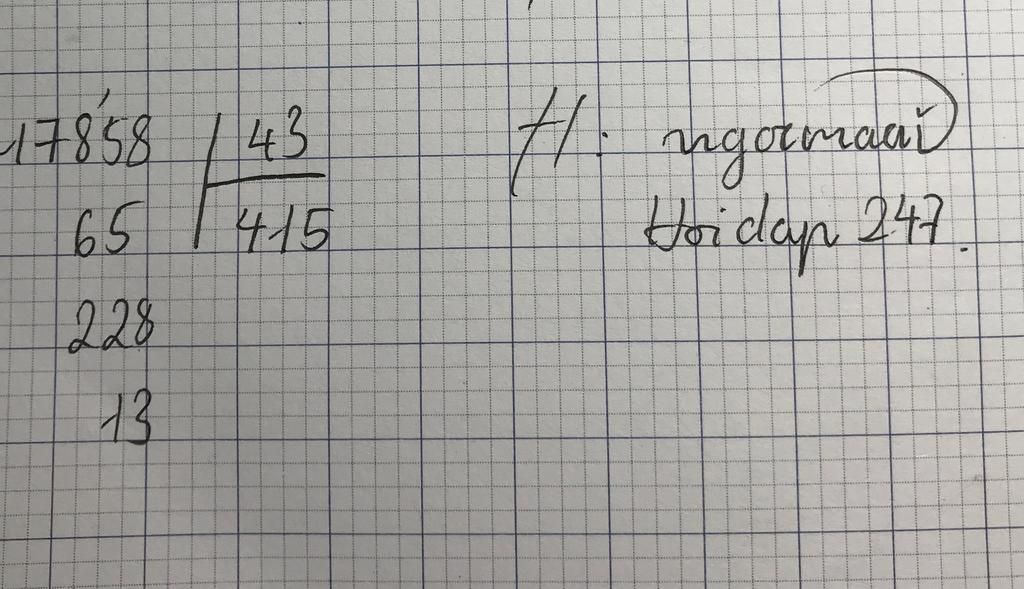 17858 43
65 415
228
13
Hoidap 247.